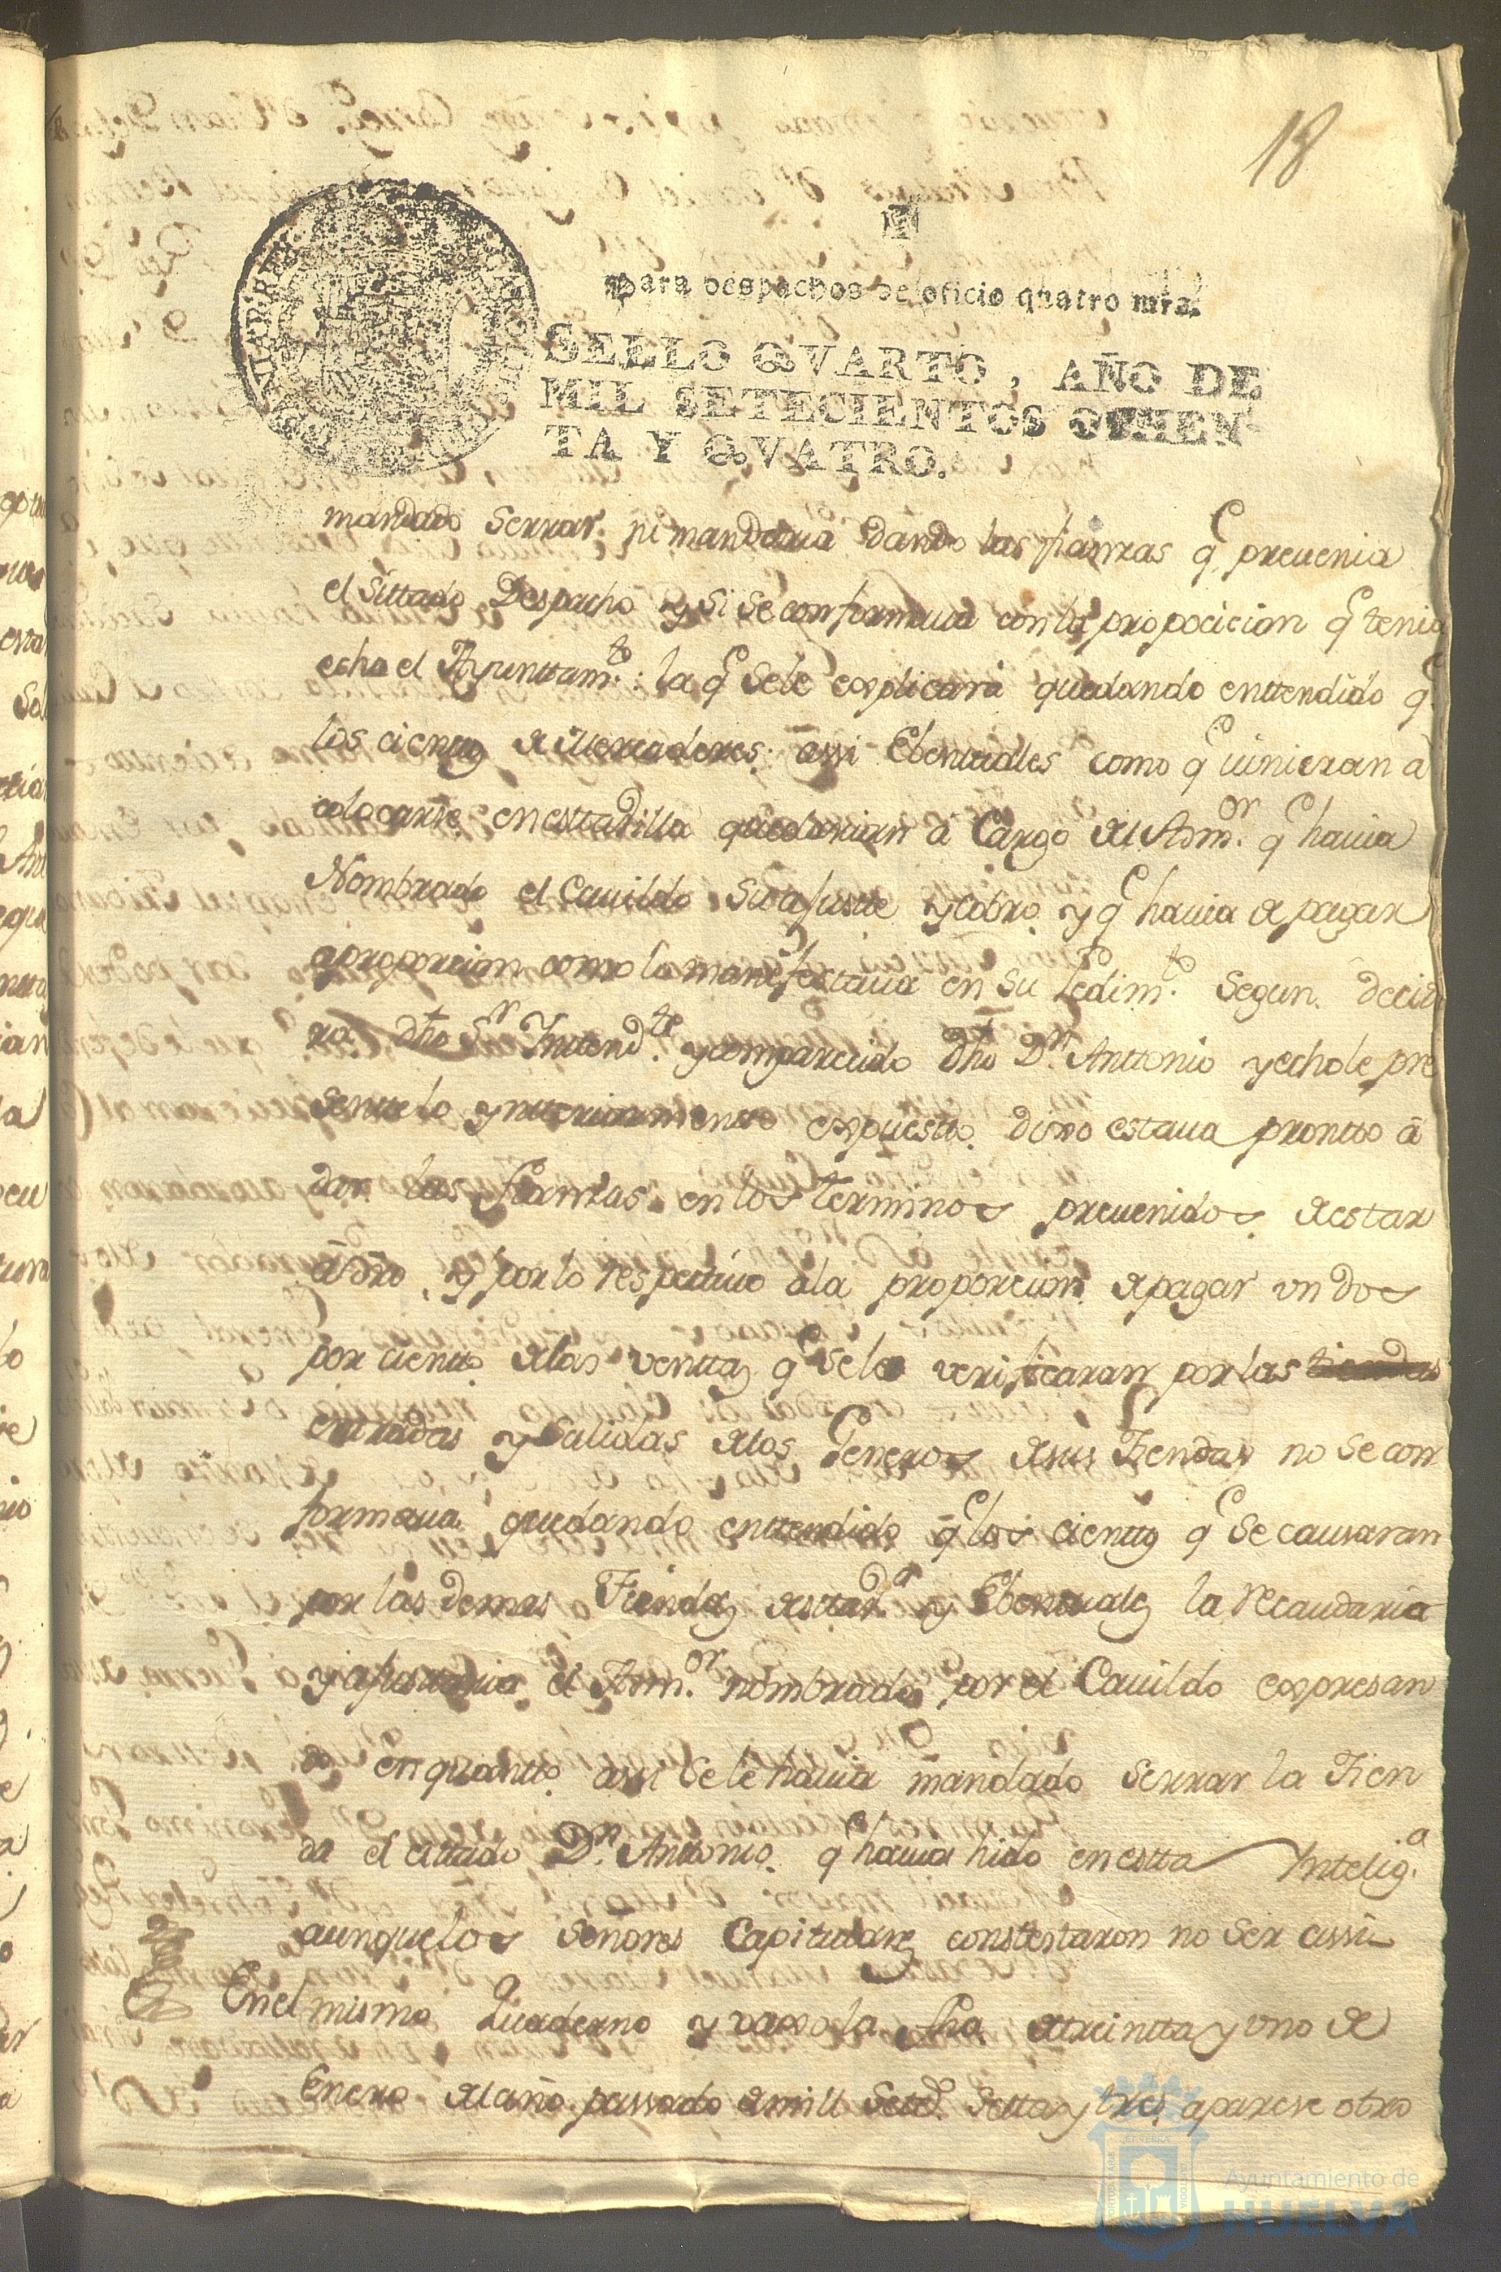 18
Para despachos de oficio quatro mrs.
SELLO QVARTO, AÑO DE
MIL SETECIENTOS OCHEN-
TA Y QVATRO.
mandado serrar ni mandaria dando las fianzas q prevenia
el Sittado Despacho y si se conformava con la propocicion q tenia
echa el Ayunttamto: la q sele explicará quedando enttendido q
los cientos de Mercaderes assi Ebentuales como q vinieran a
colocarse en estta Villa quedarian a Cargo del Admor q havia
Nombrado el Cavildo su ajustte y cobro y q havia de pagar
a proporcion como lo manifestava en su Pedimto segun decla
ra dho Sr Inttendte y comparecido dho Dn Anttonio y echole pre
sentte lo antteriormente expuestto dixo estava prontto á
dar las fianzas en los terminos prevenidos de estar
á dro, y por lo respectivo ala proporcion de pagar un dos
por ciento de las venttas q sele verificaran por las tiendas
entradas y salidas de los Generos de sus Tiendas no se con
formava quedando enttendido q los cientos q se causaran
por las demas Tiendas y Ebentuales la recaudaria
y ajustaria el Admor nombrado por el Cavildo expresan
do en quantto assi sele havia mandado serrar la Tien
da el cittado Dn Anttonio q havia hido en estta Inteliga
aunque los Señores Capitulares conttestaron no ser assi
En el mismo Quaderno y vaxo la fha de treintta y uno de
Enero del año passado de mill Seteds Setta y tres aparese otro
Ayuntamiento de
HUELVA